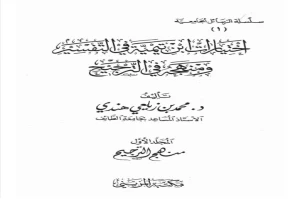 سلسلة الرسائل الجامعية
(١)
اختيارات ابن تيمية في التفسير
ومنهجه في الترجيح
تأليف
د. محمد بن زيلعي هندي
الأستاذ المساعد بجامعة الطائف
المجلد الأول
منهج الترجيح
مكتبة المزيني